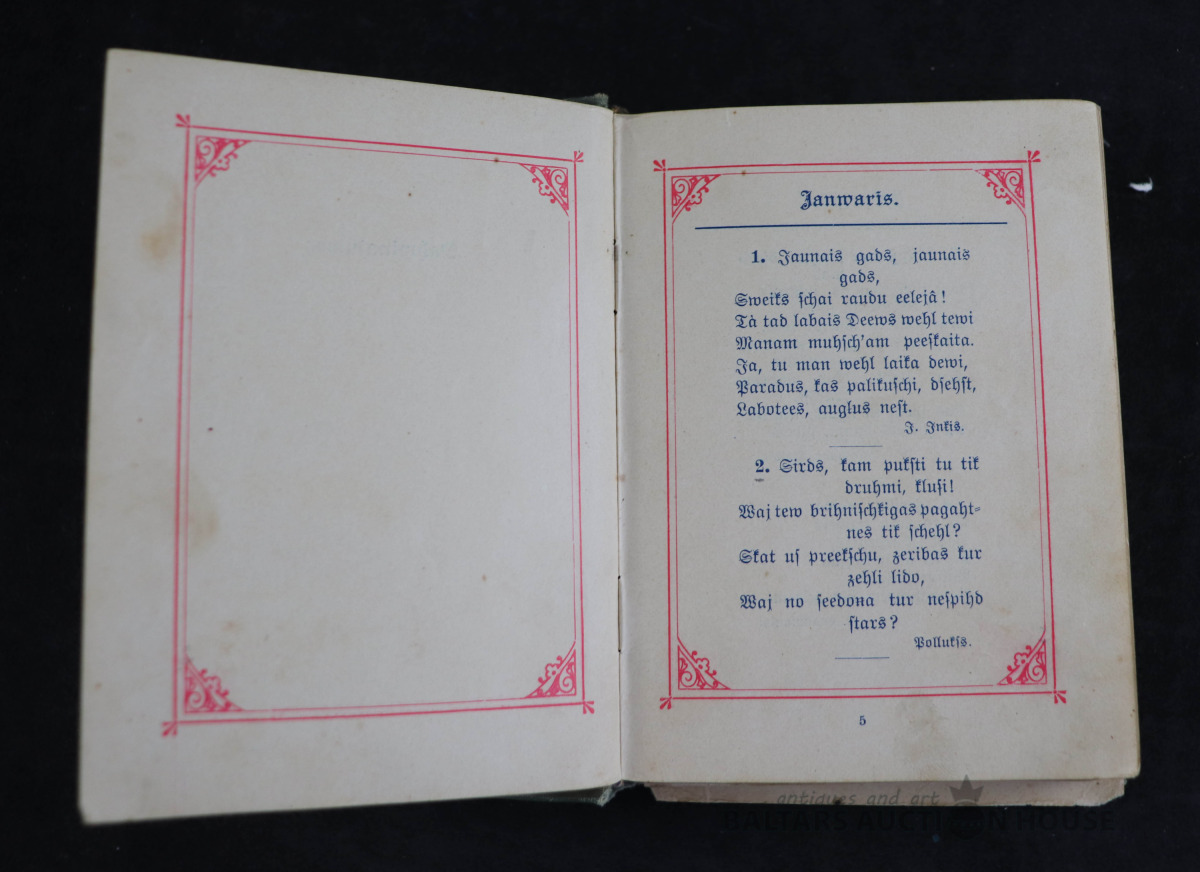 Janwaris.
1. Jaunais gads, jaunais
gads,
Sweiks ſchai raudu eelejâ!
Tà tad labais Deews wehl tewi
Manam muhſch'am peeſkaita.
Ja, tu man wehl laika dewi,
Paradus, kas palikuſchi, dſehſt,
Labotees, auglus neſt.
J. Inkis.
2. Sirds, kam pukſti tu tik
druhmi, kluſi!
Waj tew brihniſchkigas pagaht-
nes tik ſchehl?
Skat uſ preekſchu, zeribas kur
zehli lido,
Waj no ſeedoņa tur neſpihd
ſtars?
Pollukſs.
5
antiques and art
BALTARS AUCTION HOUSE